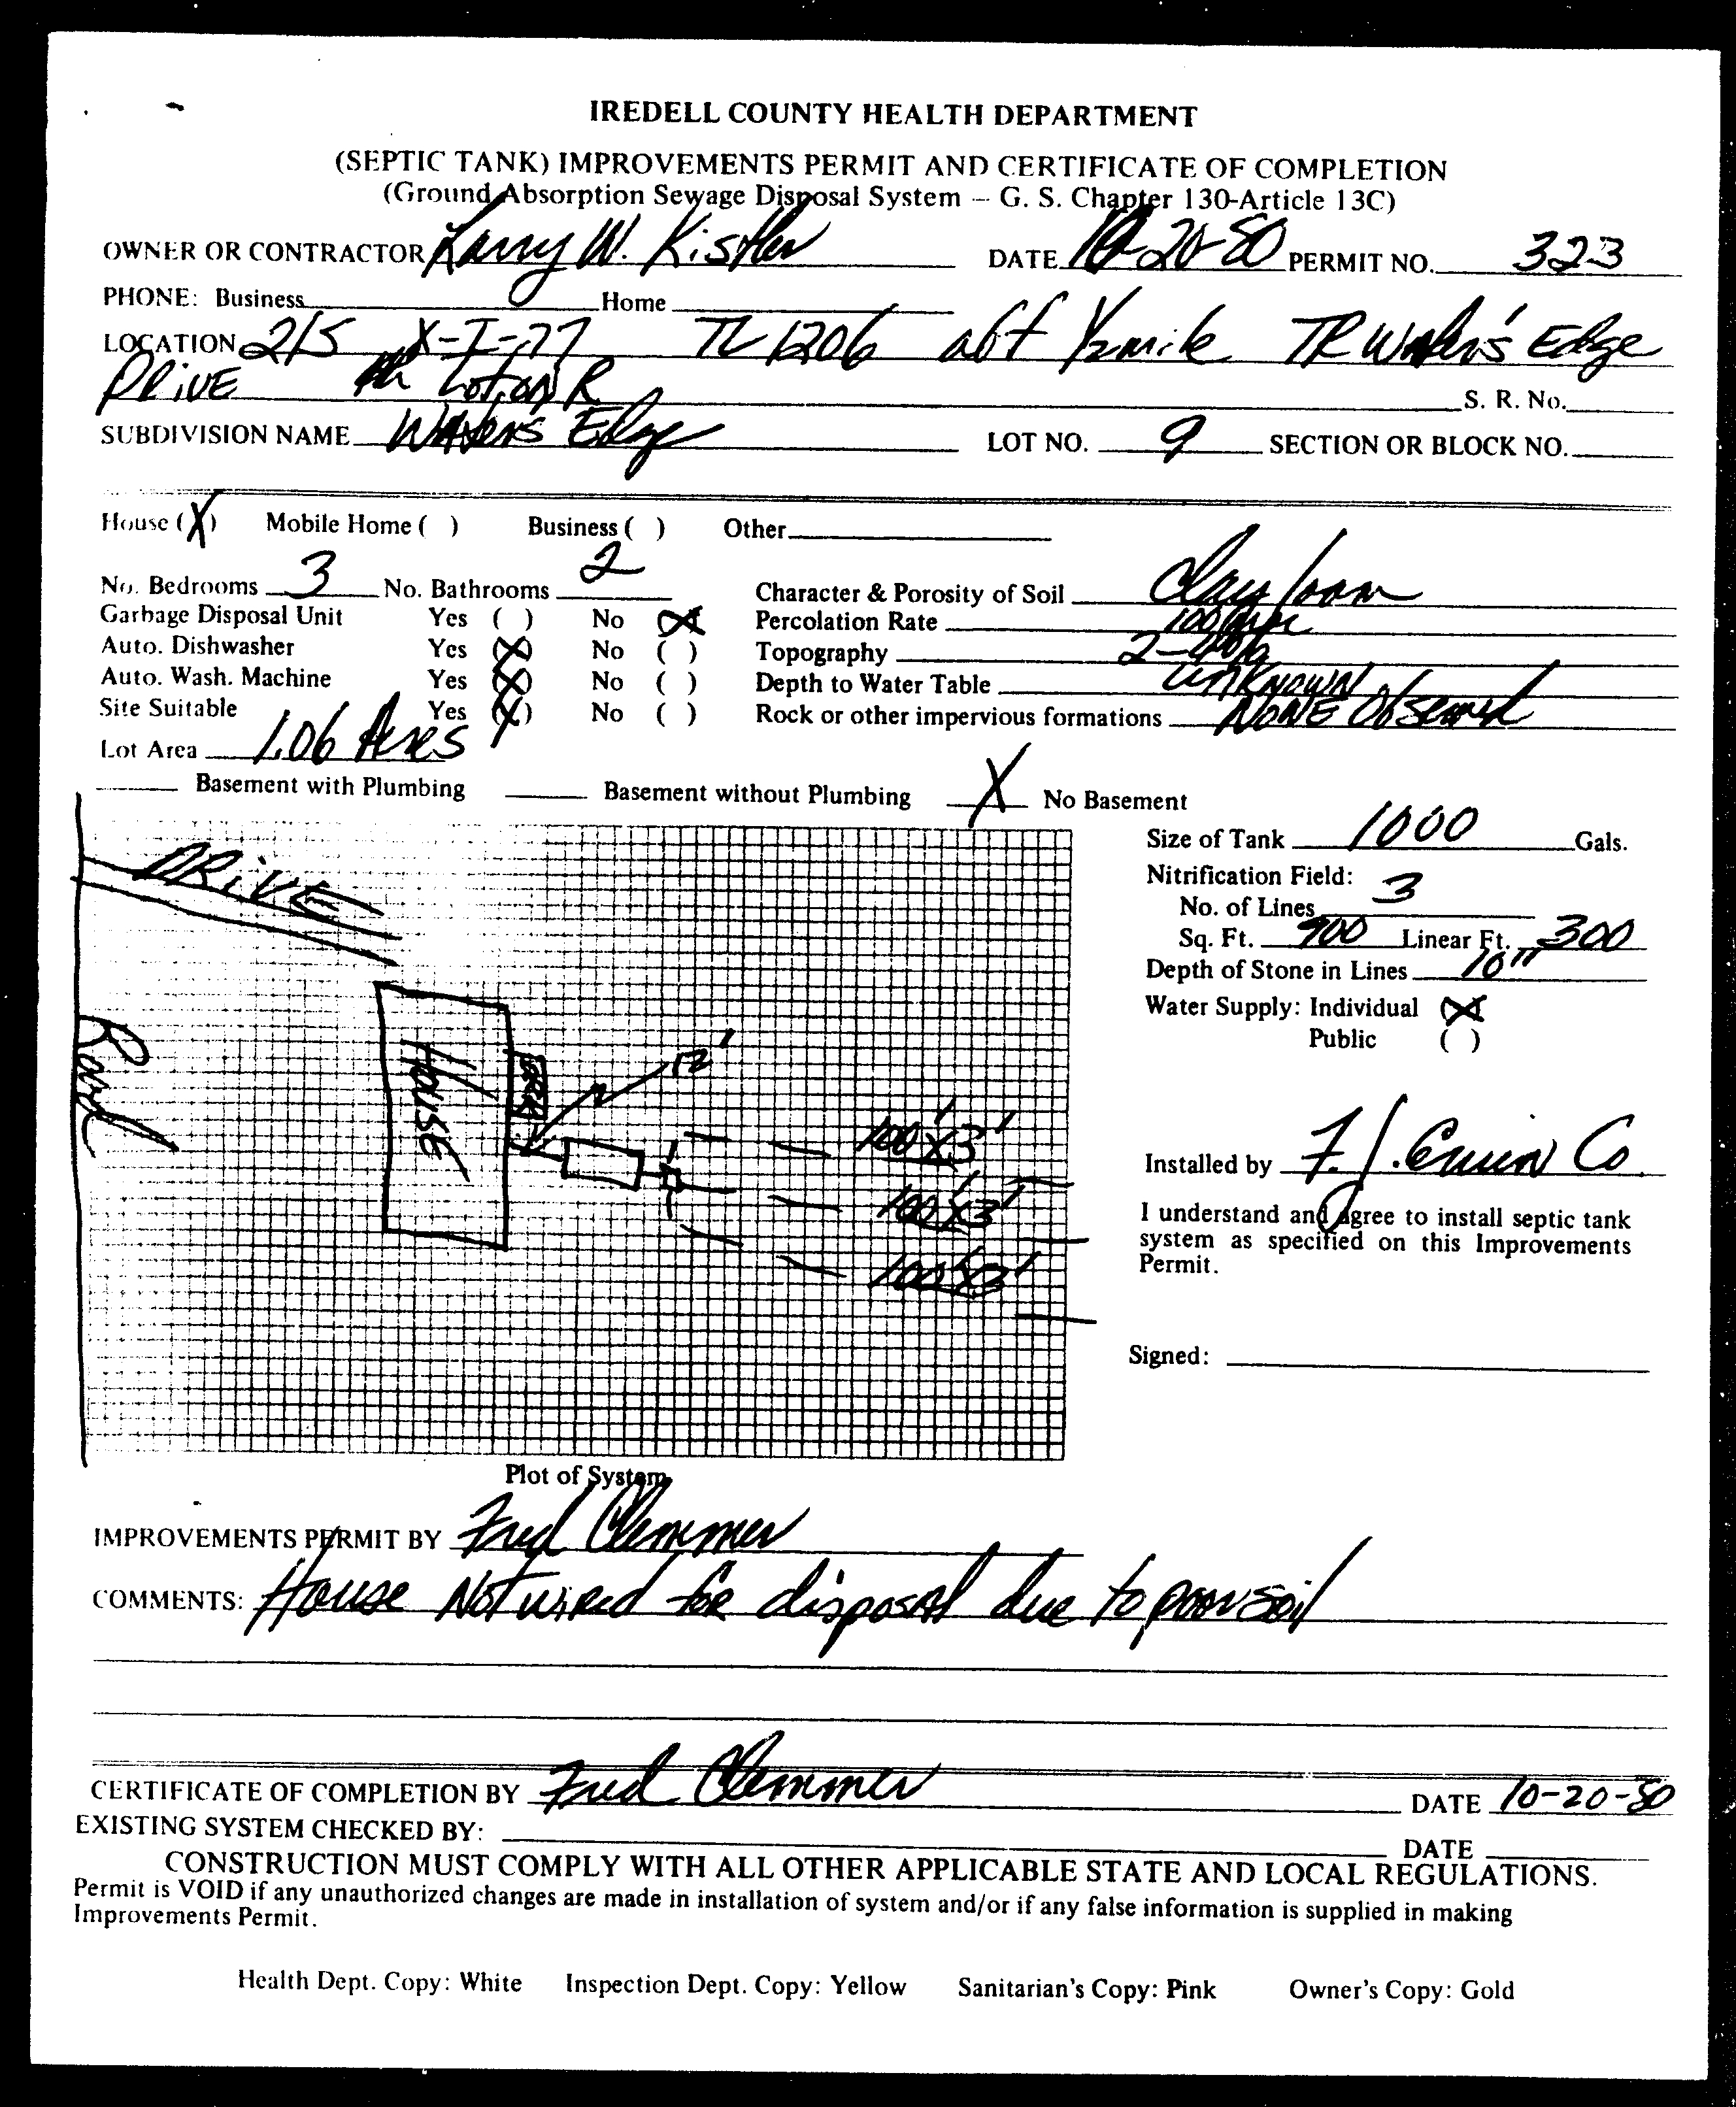 IREDELL COUNTY HEALTH DEPARTMENT
(SEPTIC TANK) IMPROVEMENTS PERMIT AND CERTIFICATE OF COMPLETION
(Ground Absorption Sewage Disposal System — G. S. Chapter 130-Article 13C)
OWNER OR CONTRACTOR Larry W. Kistler DATE 10-20-80 PERMIT NO. 323
PHONE: Business Home
LOCATION 21S X-I-77 TL 1206 abt ½ mile TR Water's Edge
DRIVE Lot on R S. R. No.
SUBDIVISION NAME Waters Edge LOT NO. 9 SECTION OR BLOCK NO.
House (X) Mobile Home ( ) Business ( ) Other
No. Bedrooms 3 No. Bathrooms 2 Character & Porosity of Soil Clay loam
Garbage Disposal Unit Yes ( ) No (X) Percolation Rate
Auto. Dishwasher Yes (X) No ( ) Topography
Auto. Wash. Machine Yes (X) No ( ) Depth to Water Table UNKNOWN
Site Suitable Yes (X) No ( ) Rock or other impervious formations NONE Observed
Lot Area 1.06 Acres
Basement with Plumbing Basement without Plumbing X No Basement
Size of Tank 1000 Gals.
Nitrification Field:
No. of Lines 3
Sq. Ft. 900 Linear Ft. 300
Depth of Stone in Lines 10"
Water Supply: Individual (X)
Public ( )
DRIVE
Road
HOUSE
12'
100'X3'
100'X3'
100'X3'
Installed by
I understand and agree to install septic tank
system as specified on this Improvements
Permit.
Signed:
Plot of System
IMPROVEMENTS PERMIT BY Fred Clemmer
COMMENTS: House Not wired for disposal due to poor soil
CERTIFICATE OF COMPLETION BY Fred Clemmer DATE 10-20-80
EXISTING SYSTEM CHECKED BY: DATE
CONSTRUCTION MUST COMPLY WITH ALL OTHER APPLICABLE STATE AND LOCAL REGULATIONS.
Permit is VOID if any unauthorized changes are made in installation of system and/or if any false information is supplied in making
Improvements Permit.
Health Dept. Copy: White Inspection Dept. Copy: Yellow Sanitarian's Copy: Pink Owner's Copy: Gold